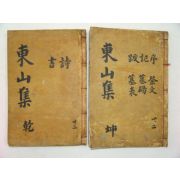 東山集 乾
詩
書
東山集 坤
序 祭文
記 墓碣
跋 墓表